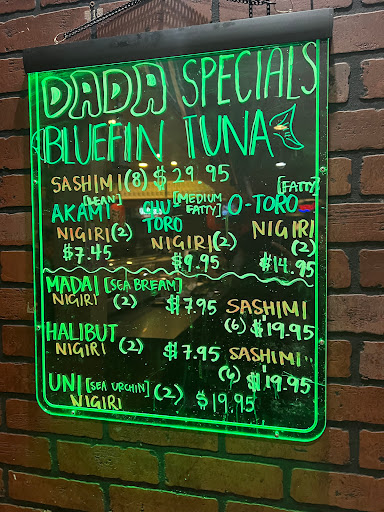 DADA SPECIALS
BLUEFIN TUNA
SASHIMI (8) $29.95
AKAMI [LEAN] CHU-TORO [MEDIUM FATTY] O-TORO [FATTY]
NIGIRI (2) NIGIRI (2) NIGIRI (2)
$7.45 $9.95 $14.95
MADAI [SEA BREAM] NIGIRI (2) $7.95 SASHIMI (6) $19.95
HALIBUT NIGIRI (2) $7.95 SASHIMI (6) $19.95
UNI [SEA URCHIN] NIGIRI (2) $19.95